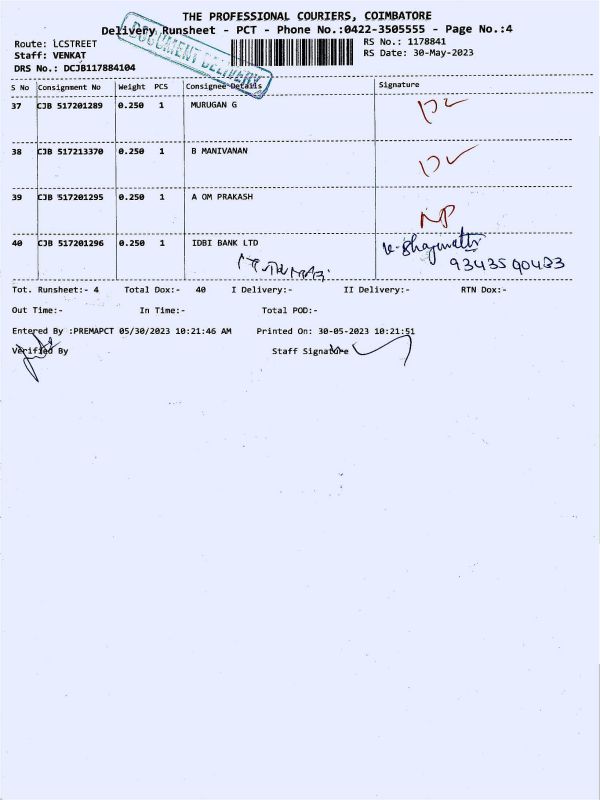 THE PROFESSIONAL COURIERS, COIMBATORE
Delivery Runsheet - PCT - Phone No.:0422-3505555 - Page No.:4
Route: LCSTREET
RS No.: 1178841
Staff: VENKAT
RS Date: 30-May-2023
DRS No.: DCJB117884104
DOCUMENT DELIVERY
S No Consignment No Weight PCS Consignee Details Signature
37 CJB 517201289 0.250 1 MURUGAN G
38 CJB 517213370 0.250 1 B MANIVANAN
39 CJB 517201295 0.250 1 A OM PRAKASH
40 CJB 517201296 0.250 1 IDBI BANK LTD
Tot. Runsheet:- 4 Total Dox:- 40 I Delivery:- II Delivery:- RTN Dox:-
Out Time:- In Time:- Total POD:-
Entered By :PREMAPCT 05/30/2023 10:21:46 AM Printed On: 30-05-2023 10:21:51
Verified By Staff Signature